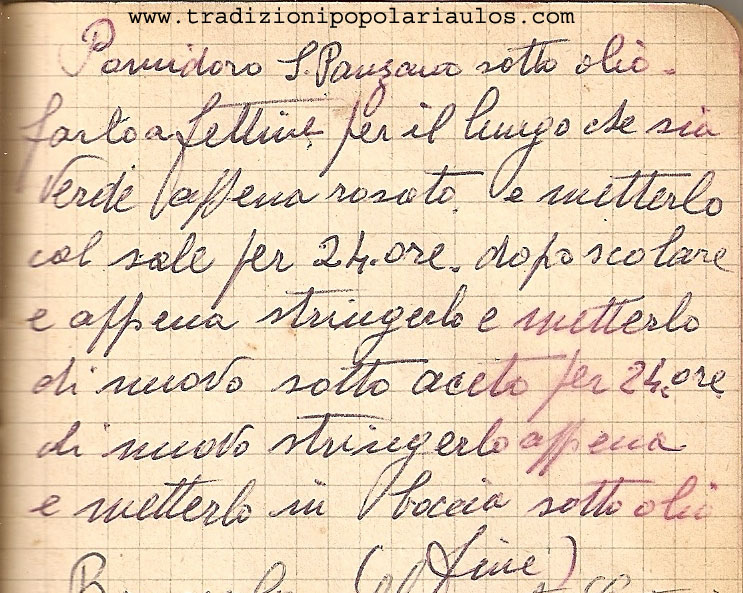 www.tradizionipopolariaulos.com
Pomidoro S. Panzano sotto olio.
farlo a fettine per il lungo che sia
verde appena rosato e metterlo
col sale per 24. ore. dopo scolare
e appena stringerlo e metterlo
di nuovo sotto aceto per 24. ore
di nuovo stringerlo appena
e metterlo in boccia sotto olio
(fine)